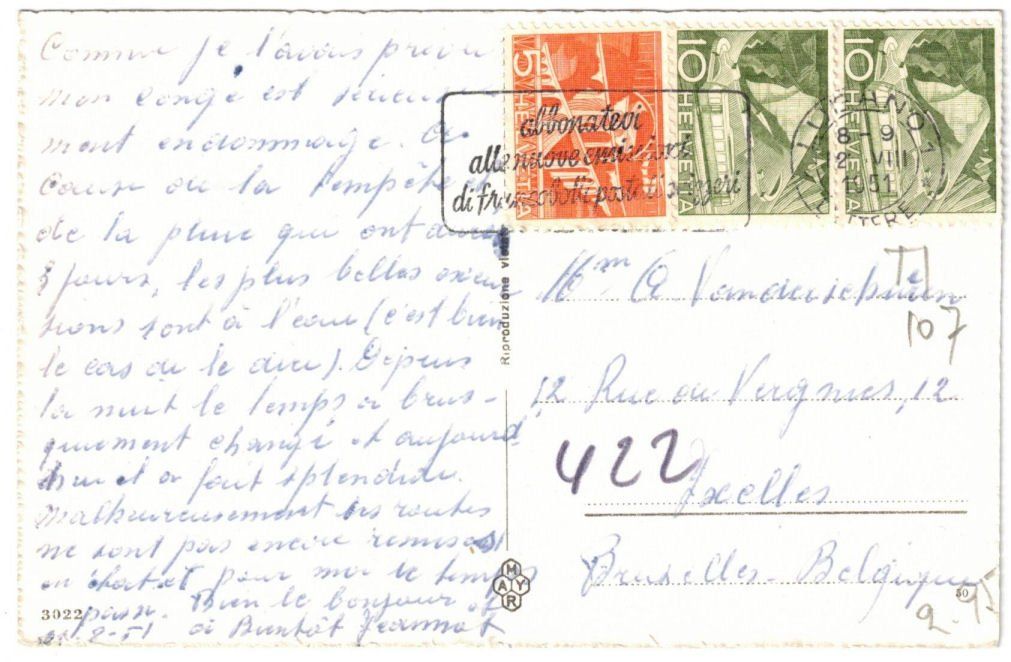 Comme je l'avais prévu
mon congé est sérieuse
ment endommagé. A
cause de la tempête
de la pluie qui ont duré
jours, les plus belles excur
sions sont à l'eau (c'est bien
le cas de le dire). Depuis
la nuit le temps a brus-
quement changé et aujourd
hui il a fait splendide.
Malheureusement les routes
ne sont pas encore remises
en état et pour moi le temps
passe. Bien le bonjour et
à Bientôt Jeannot
3022
2-51
abbonatevi
alle nuove emissioni
di francobolli postali svizzeri
5
HELVETIA
10
HELVETIA
10
HELVETIA
LUGANO 1
8-9
2 VIII
1951
LETTERE
Riproduzione viet
MAYR
TI
107
Mme A Vanderschuren
12 Rue de Vergnies, 12
422
Ixelles
Bruxelles - Belgique
50
2.95